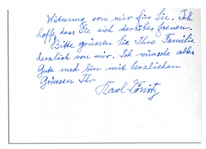 Widmung von mir für Sie. Ich
hoffe dass Sie sich darüber freuen.
Bitte grüssen Sie Ihre Familie
herzlich von mir. Ich wünsche alles
Gute und bin mit herzlichen
Grüssen Ihr
Karl Dönitz